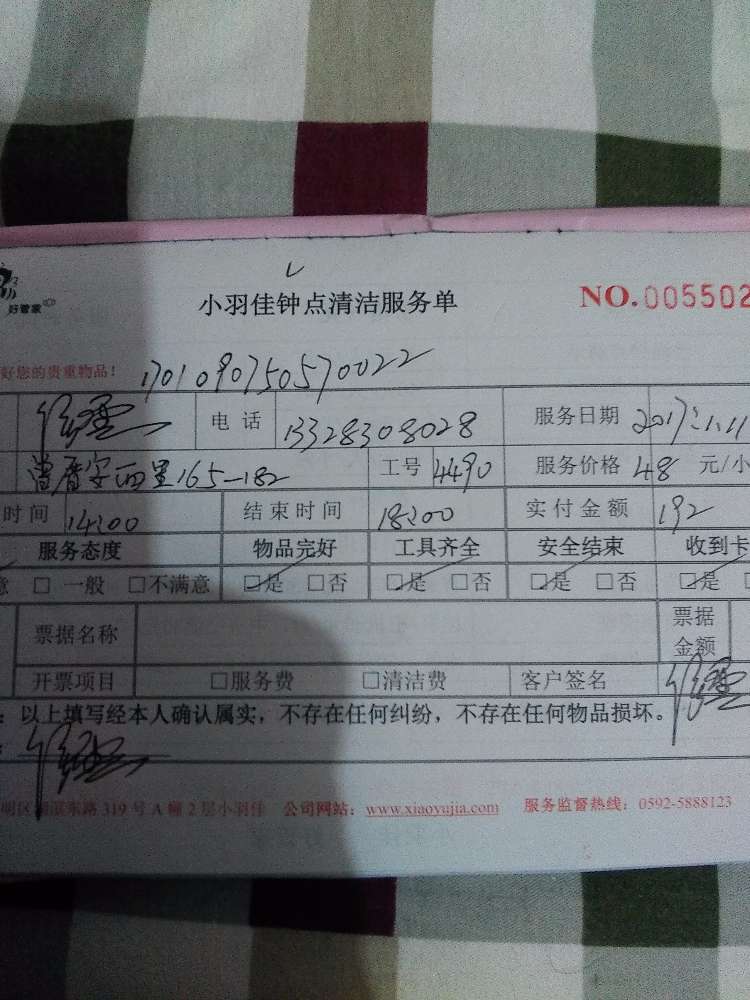 小羽佳钟点清洁服务单 NO.005502
好管家
好您的贵重物品！ 1701090750570022
电话 13328308028 服务日期 2017.1.11
曾厝安西里165-182 工号 4490 服务价格 48 元/小
时间 14:00 结束时间 18:00 实付金额 192
服务态度 物品完好 工具齐全 安全结束 收到卡
意 □ 一般 □不满意 □是 □否 □是 □否 □是 □否 □是
票据名称 票据金额
开票项目 □服务费 □清洁费 客户签名
：以上填写经本人确认属实，不存在任何纠纷，不存在任何物品损坏。
明区 东路 319 号 A 幢 2 层小羽佳 公司网站：www.xiaoyujia.com 服务监督热线：0592-5888123